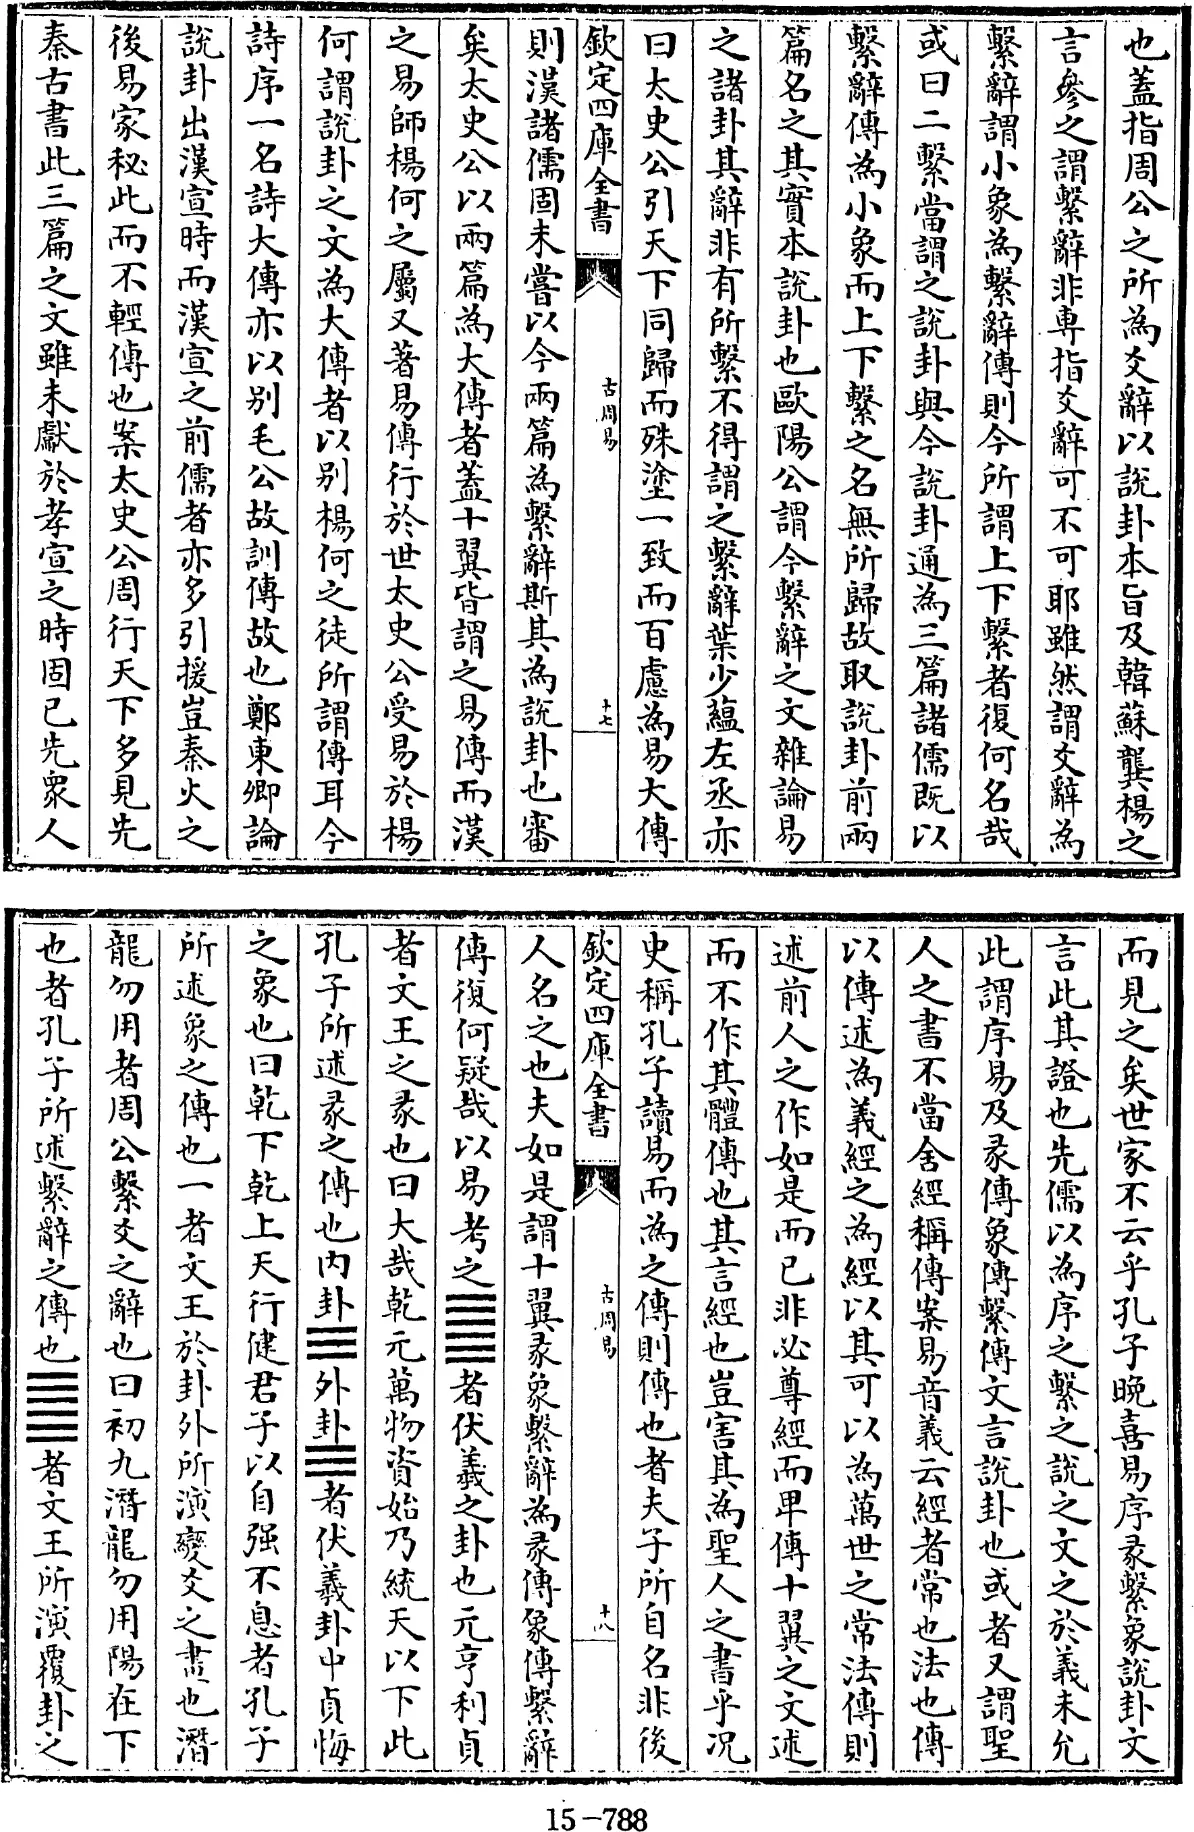 也蓋指周公之所為爻辭以說卦本旨及韓蘇龔楊之
言參之謂繫辭非専指爻辭可不可耶雖然謂爻辭為
繫辭謂小象為繫辭傳則今所謂上下繫者復何名哉
或曰二繫當謂之說卦與今說卦通為三篇諸儒既以
繫辭傳為小象而上下繫之名無所歸故取說卦前兩
篇名之其實本說卦也歐陽公謂今繫辭之文雜論易
之諸卦其辭非有所繫不得謂之繫辭葉少蘊左丞亦
曰太史公引天下同歸而殊塗一致而百慮為易大傳
欽定四庫全書 古周易 十七
則漢諸儒固未嘗以今兩篇為繫辭斯其為說卦也審
矣太史公以兩篇為大傳者蓋十翼皆謂之易傳而漢
之易師楊何之屬又著易傳行於世太史公受易於楊
何謂說卦之文為大傳者以別楊何之徒所謂傳耳今
詩序一名詩大傳亦以別毛公故訓傳故也鄭東卿論
說卦出漢宣時而漢宣之前儒者亦多引援豈秦火之
後易家秘此而不輕傳也案太史公周行天下多見先
秦古書此三篇之文雖未獻於孝宣之時固已先衆人
而見之矣世家不云乎孔子晚喜易序彖繫象說卦文
言此其證也先儒以為序之繫之說之文之於義未允
此謂序易及彖傳象傳繫傳文言說卦也或者又謂聖
人之書不當舍經稱傳案易音義云經者常也法也傳
以傳述為義經之為經以其可以為萬世之常法傳則
述前人之作如是而已非必尊經而卑傳十翼之文述
而不作其體傳也其言經也豈害其為聖人之書乎況
史稱孔子讀易而為之傳則傳也者夫子所自名非後
欽定四庫全書 古周易 十八
人名之也夫如是謂十翼彖象繫辭為彖傳象傳繫辭
傳復何疑哉以易考之䷀者伏羲之卦也元亨利貞
者文王之彖也曰大哉乾元萬物資始乃統天以下此
孔子所述彖之傳也内卦☰外卦☰者伏羲卦中貞悔
之象也曰乾下乾上天行健君子以自强不息者孔子
所述象之傳也一者文王於卦外所演變爻之畫也潛
龍勿用者周公繫爻之辭也曰初九潛龍勿用陽在下
也者孔子所述繫辭之傳也䷀者文王所演覆卦之
15-788